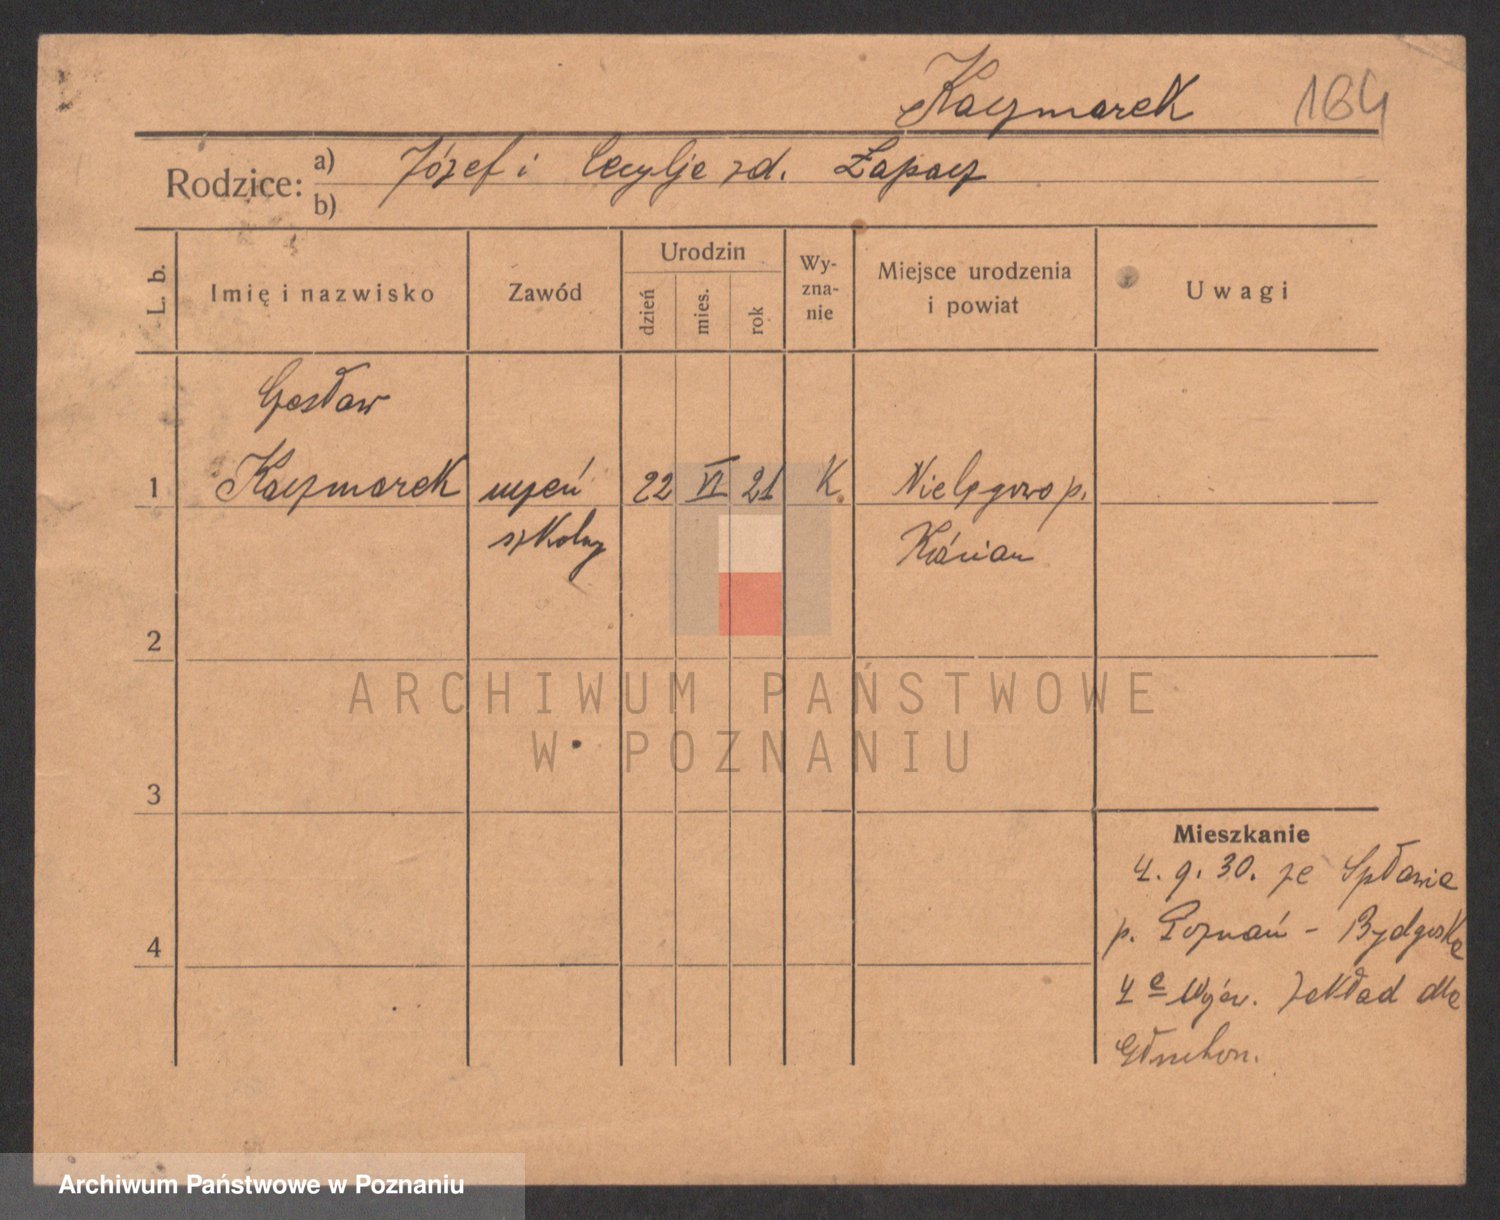 Kaczmarek 164
Rodzice: a) Józef i Cecylje zd. Łapacz
b)
L. b. Imię i nazwisko Zawód Urodzin dzień mies. rok Wyzna-nie Miejsce urodzenia i powiat Uwagi
Czesław
1 Kaczmarek uczeń 22 VI 21 K. Nielęgowo p.
szkolny Kościan
2
ARCHIWUM PAŃSTWOWE
W POZNANIU
3
Mieszkanie
4. 9. 30. ze Spławie
p. Poznań - Bydgoska
4 Zakład dla
4
Głuchon.
Archiwum Państwowe w Poznaniu